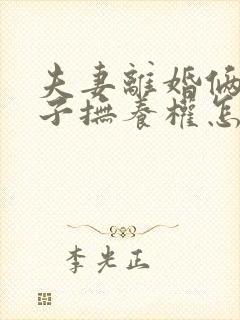 夫妻離婚俩
子撫養權怎
李光正